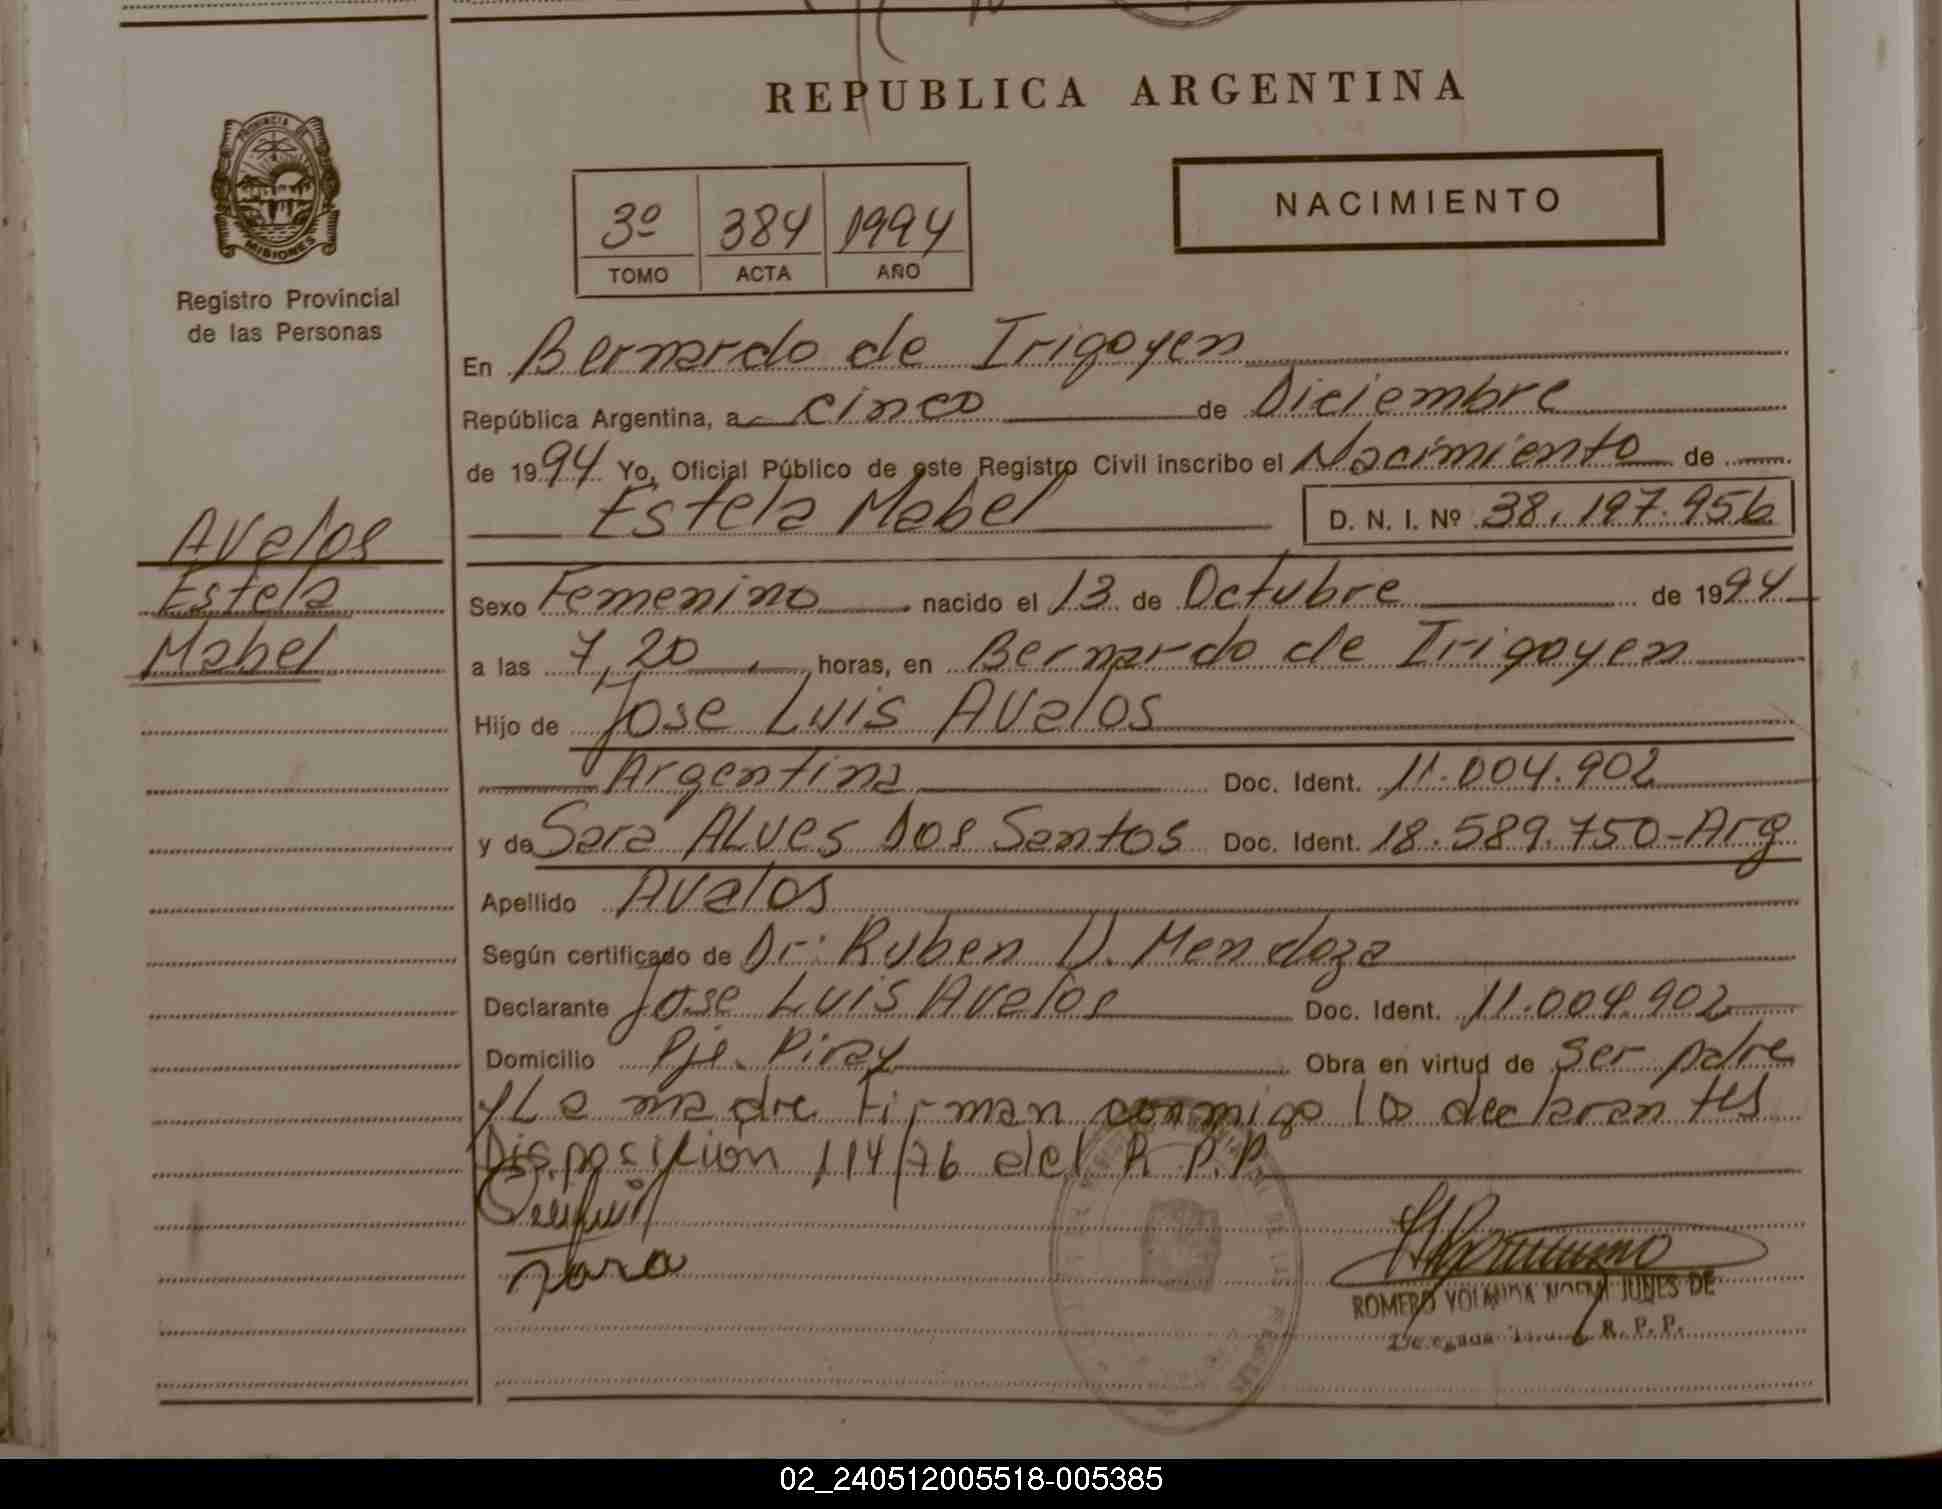 REPUBLICA ARGENTINA
PROVINCIA DE
MISIONES
Registro Provincial
de las Personas
3º 384 1994
TOMO ACTA AÑO
NACIMIENTO
En Bernardo de Irigoyen
República Argentina, a cinco de Diciembre
de 1994 Yo, Oficial Público de este Registro Civil inscribo el Nacimiento de
Estela Mabel D. N. I. Nº 38.197.956
Avalos
Estela
Mabel
Sexo Femenino nacido el 13 de Octubre de 1994
a las 7,20 horas, en Bernardo de Irigoyen
Hijo de Jose Luis Avalos
Argentina Doc. Ident. 11.004.902
y de Sara ALves Dos Santos Doc. Ident. 18.589.750-Arg
Apellido Avalos
Según certificado de Dr: Ruben D. Mendoza
Declarante Jose Luis Avalos Doc. Ident. 11.004.902
Domicilio Pje. Piray Obra en virtud de ser padre
y La madre Firman conmigo los declarantes
Disposicion 114/76 del R.P.P.
Sara
ROMERO YOLANDA NOEMI JUNES DE
R. P. P.
02_240512005518-005385